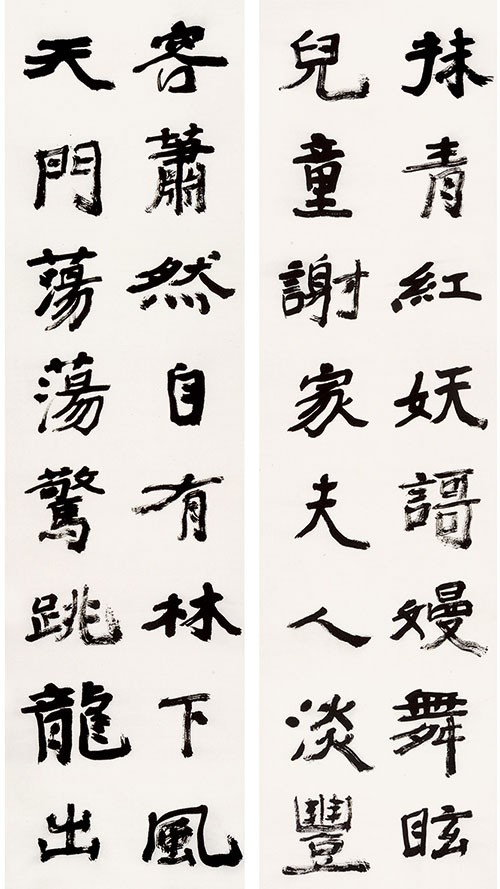 抹青紅妖謌嫚舞眩
兒童謝家夫人淡豐
容蕭然自有林下風
天門蕩蕩驚跳龍出